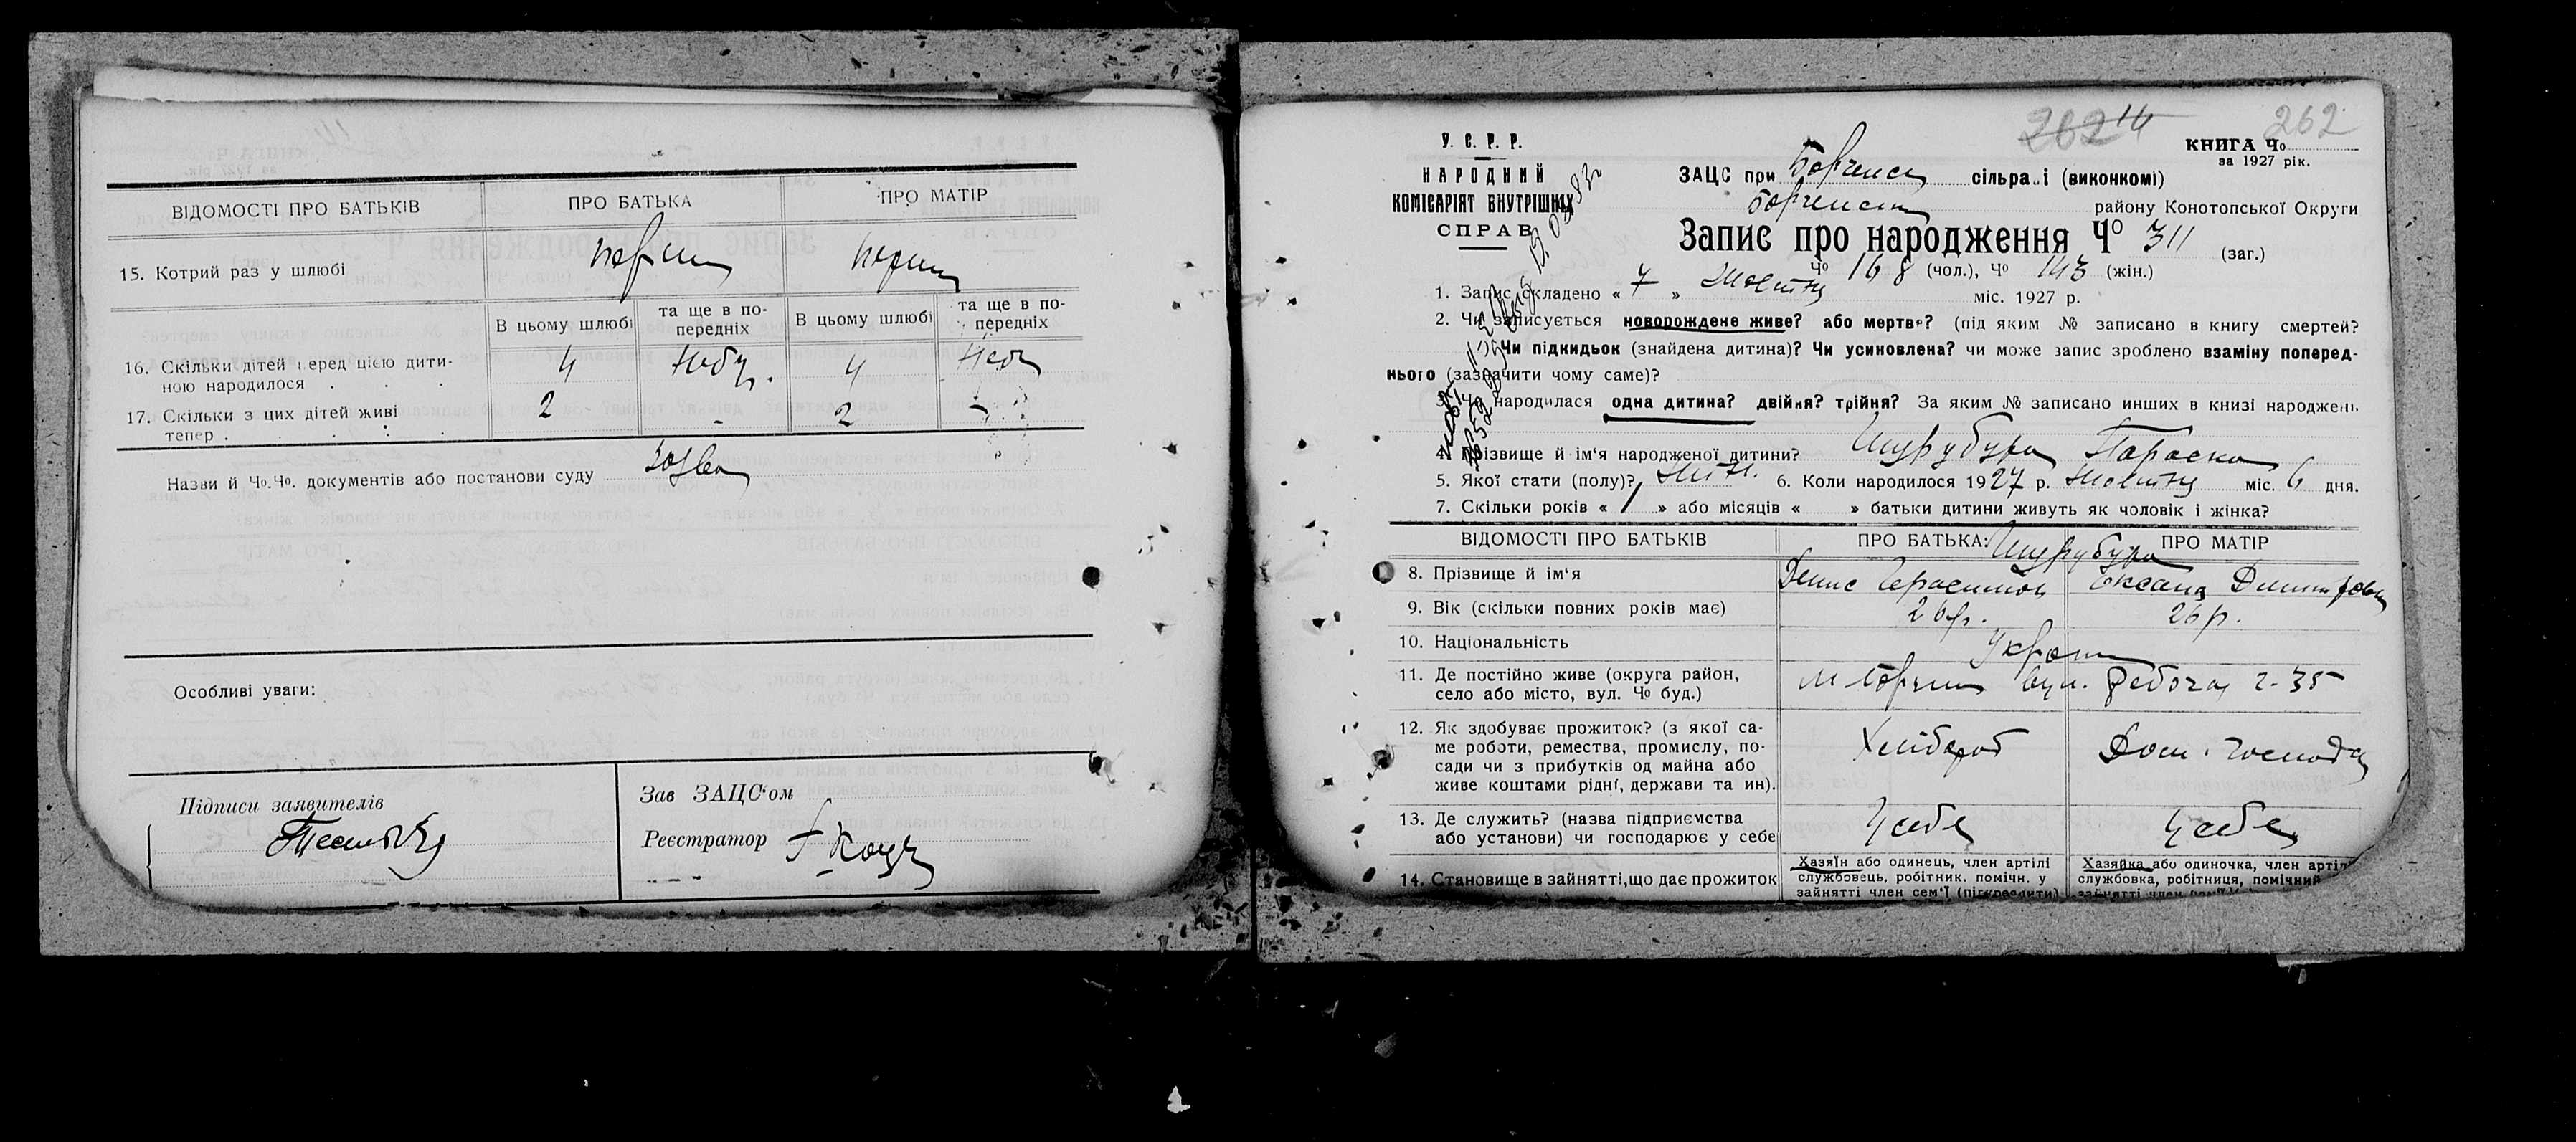 ВІДОМОСТІ ПРО БАТЬКІВ
ПРО БАТЬКА
ПРО МАТІР
15. Котрий раз у шлюбі
В цьому шлюбі
та ще в по-
передніх
В цьому шлюбі
та ще в по-
передніх
16. Скільки дітей перед цією дити-
ною народилося
4
4
17. Скільки з цих дітей живі
тепер
2
-
2
-
Назви й Чо.Чо. документів або постанови суду
Особливі уваги:
Підписи заявителів
Зав ЗАЦС'ом
Реєстратор
262
У. С. Р. Р.
НАРОДНИЙ
КОМІСАРІЯТ ВНУТРІШНІХ
СПРАВ
262
КНИГА Чо
за 1927 рік.
ЗАЦС при сільраді (виконкомі)
району Конотопської Округи
Запис про народження Чо 311 (заг.)
Чо 168 (чол.), Чо 143 (жін.)
1. Запис складено « 7 » Жовтня міс. 1927 р.
2. Чи записується новорождене живе? або мертве? (під яким № записано в книгу смертей?
Чи підкидьок (знайдена дитина)? Чи усиновлена? чи може запис зроблено взаміну поперед-
нього (зазначити чому саме)?
3. Чи народилася одна дитина? двійня? трійня? За яким № записано инших в книзі народжень
4. Прізвище й ім'я народженої дитини? Шурубура Параска
5. Якої стати (полу)? Жін. 6. Коли народилося 1927 р. Жовтня міс. 6 дня.
7. Скільки років « » або місяців « » батьки дитини живуть як чоловік і жінка?
ВІДОМОСТІ ПРО БАТЬКІВ
ПРО БАТЬКА:
ПРО МАТІР
Шурубура
8. Прізвище й ім'я
Денис Герасимов
Оксана
9. Вік (скільки повних років має)
26 р.
26 р.
10. Національність
11. Де постійно живе (округа район,
село або місто, вул. Чо буд.)
вул. Робоча ч. 35
12. Як здобуває прожиток? (з якої са-
ме роботи, ремества, промислу, по-
сади чи з прибутків од майна або
живе коштами рідні, держави та ин).
Хлібороб
Дом. господ
13. Де служить? (назва підприємства
або установи) чи господарює у себе
У себе
У себе
14. Становище в зайнятті, що дає прожиток
Хазяїн або одинець, член артілі
службовець, робітник. помічн. у
зайнятті член сем'ї (підкреслити)
Хазяйка або одиночка, член артілі
службовка, робітниця, помічний